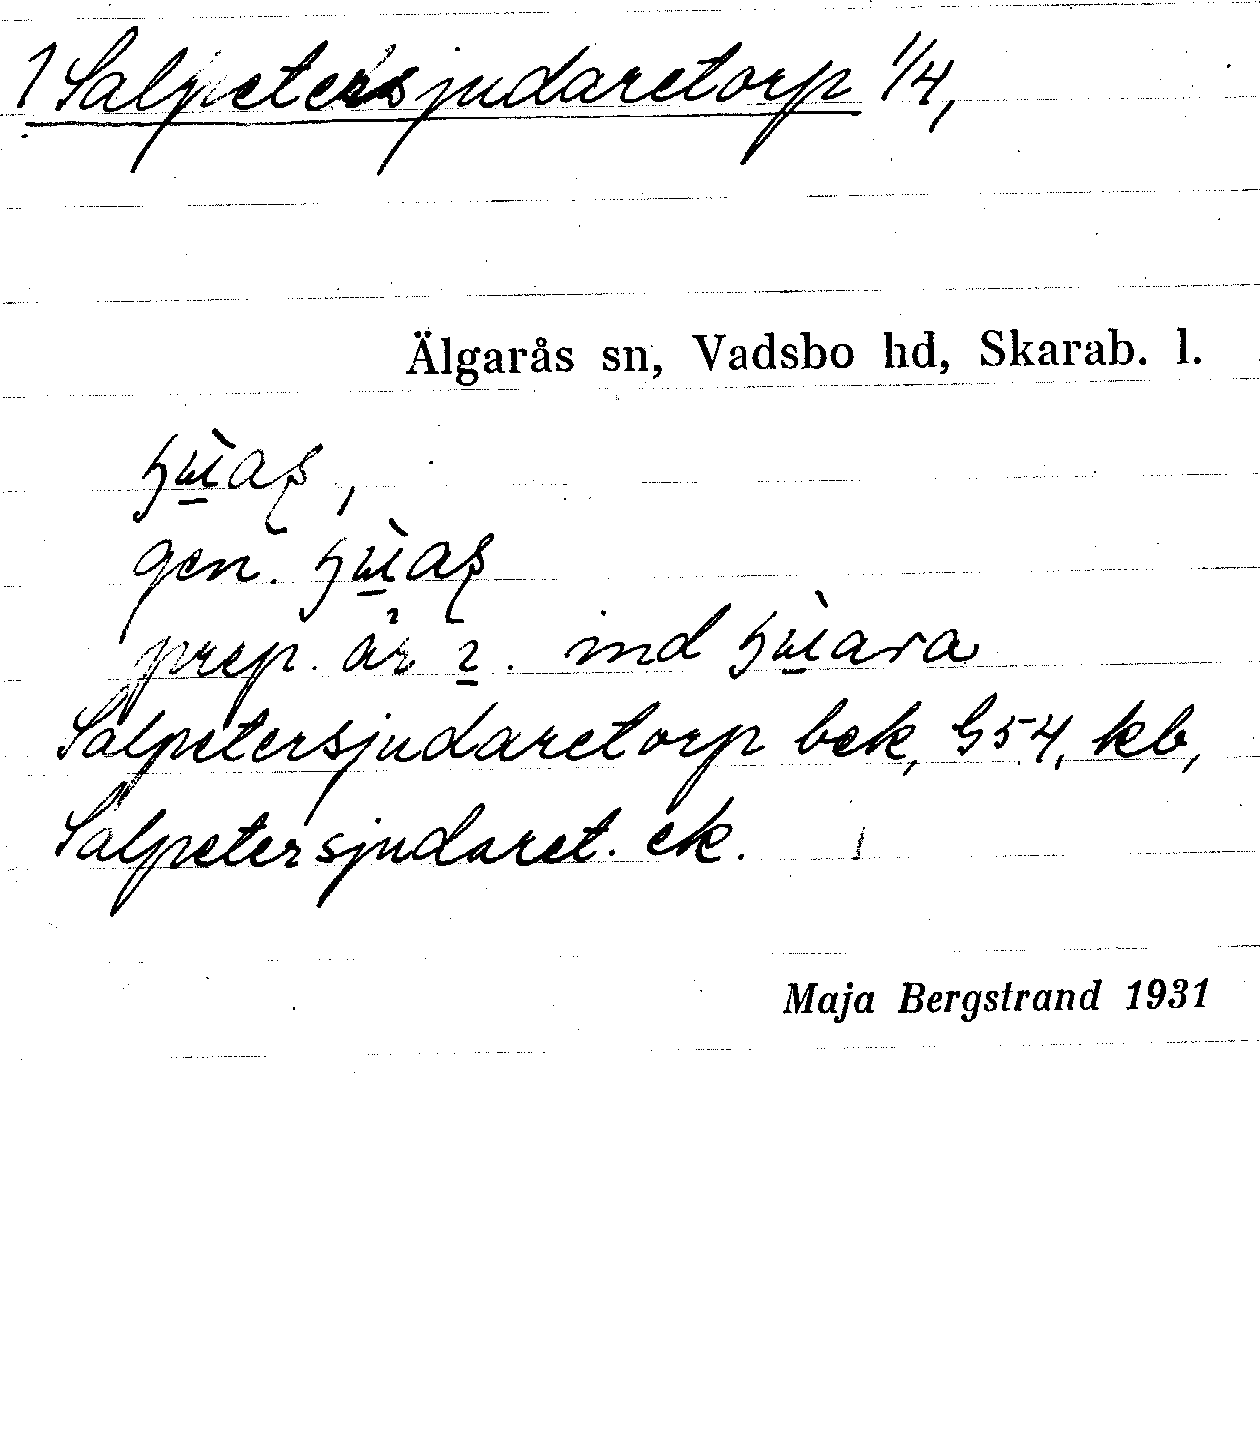 1 Salpetersjudaretorp 1/4,
Älgarås sn, Vadsbo hd, Skarab. l.
gen.
prep. är 2. ind
Salpetersjudaretorp bek, G54, kb,
Salpetersjudaret. ek.
Maja Bergstrand 1931